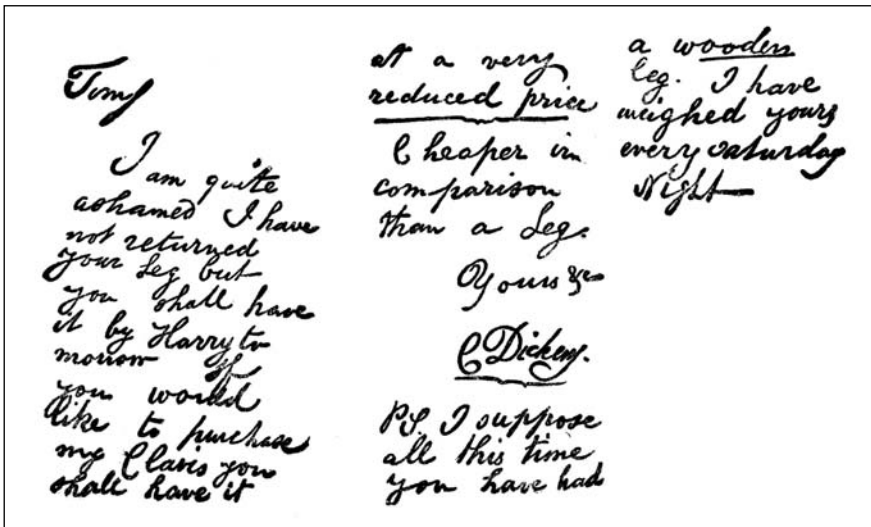 Tom
I am quite
ashamed I have
not returned
your Leg but
you shall have
it by Harry to
morrow If
you would
like to purchase
my Clavis you
shall have it
at a very
reduced price
Cheaper in
comparison
than a Leg.
Yours &c
C Dickens.
PS. I suppose
all this time
you have had
a wooden
leg. I have
weighed yours
every saturday
Night